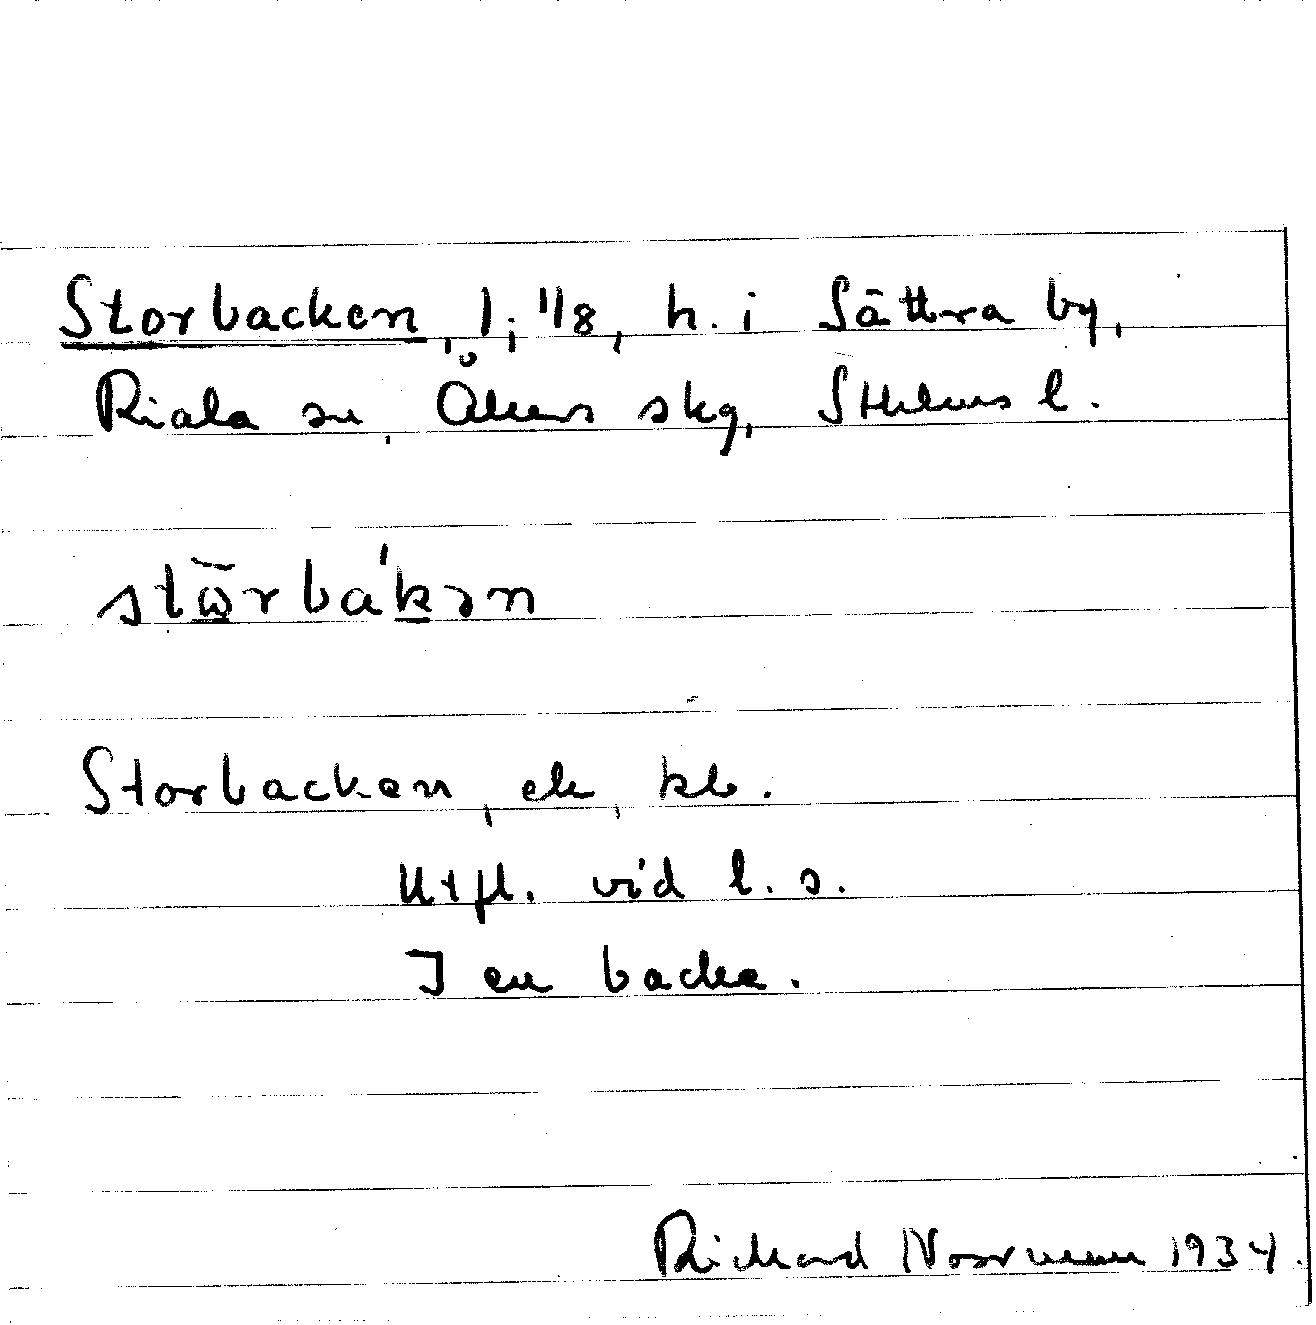 Storbacken, 1; 1/8, h. i Sättra by,
Riala sn, Åkers skg, Sthlms l.
stω̄rba'kən
Storbacken, ek, kb.
Utfl. vid l. s.
I en backe.
Richard Norrman 1934.